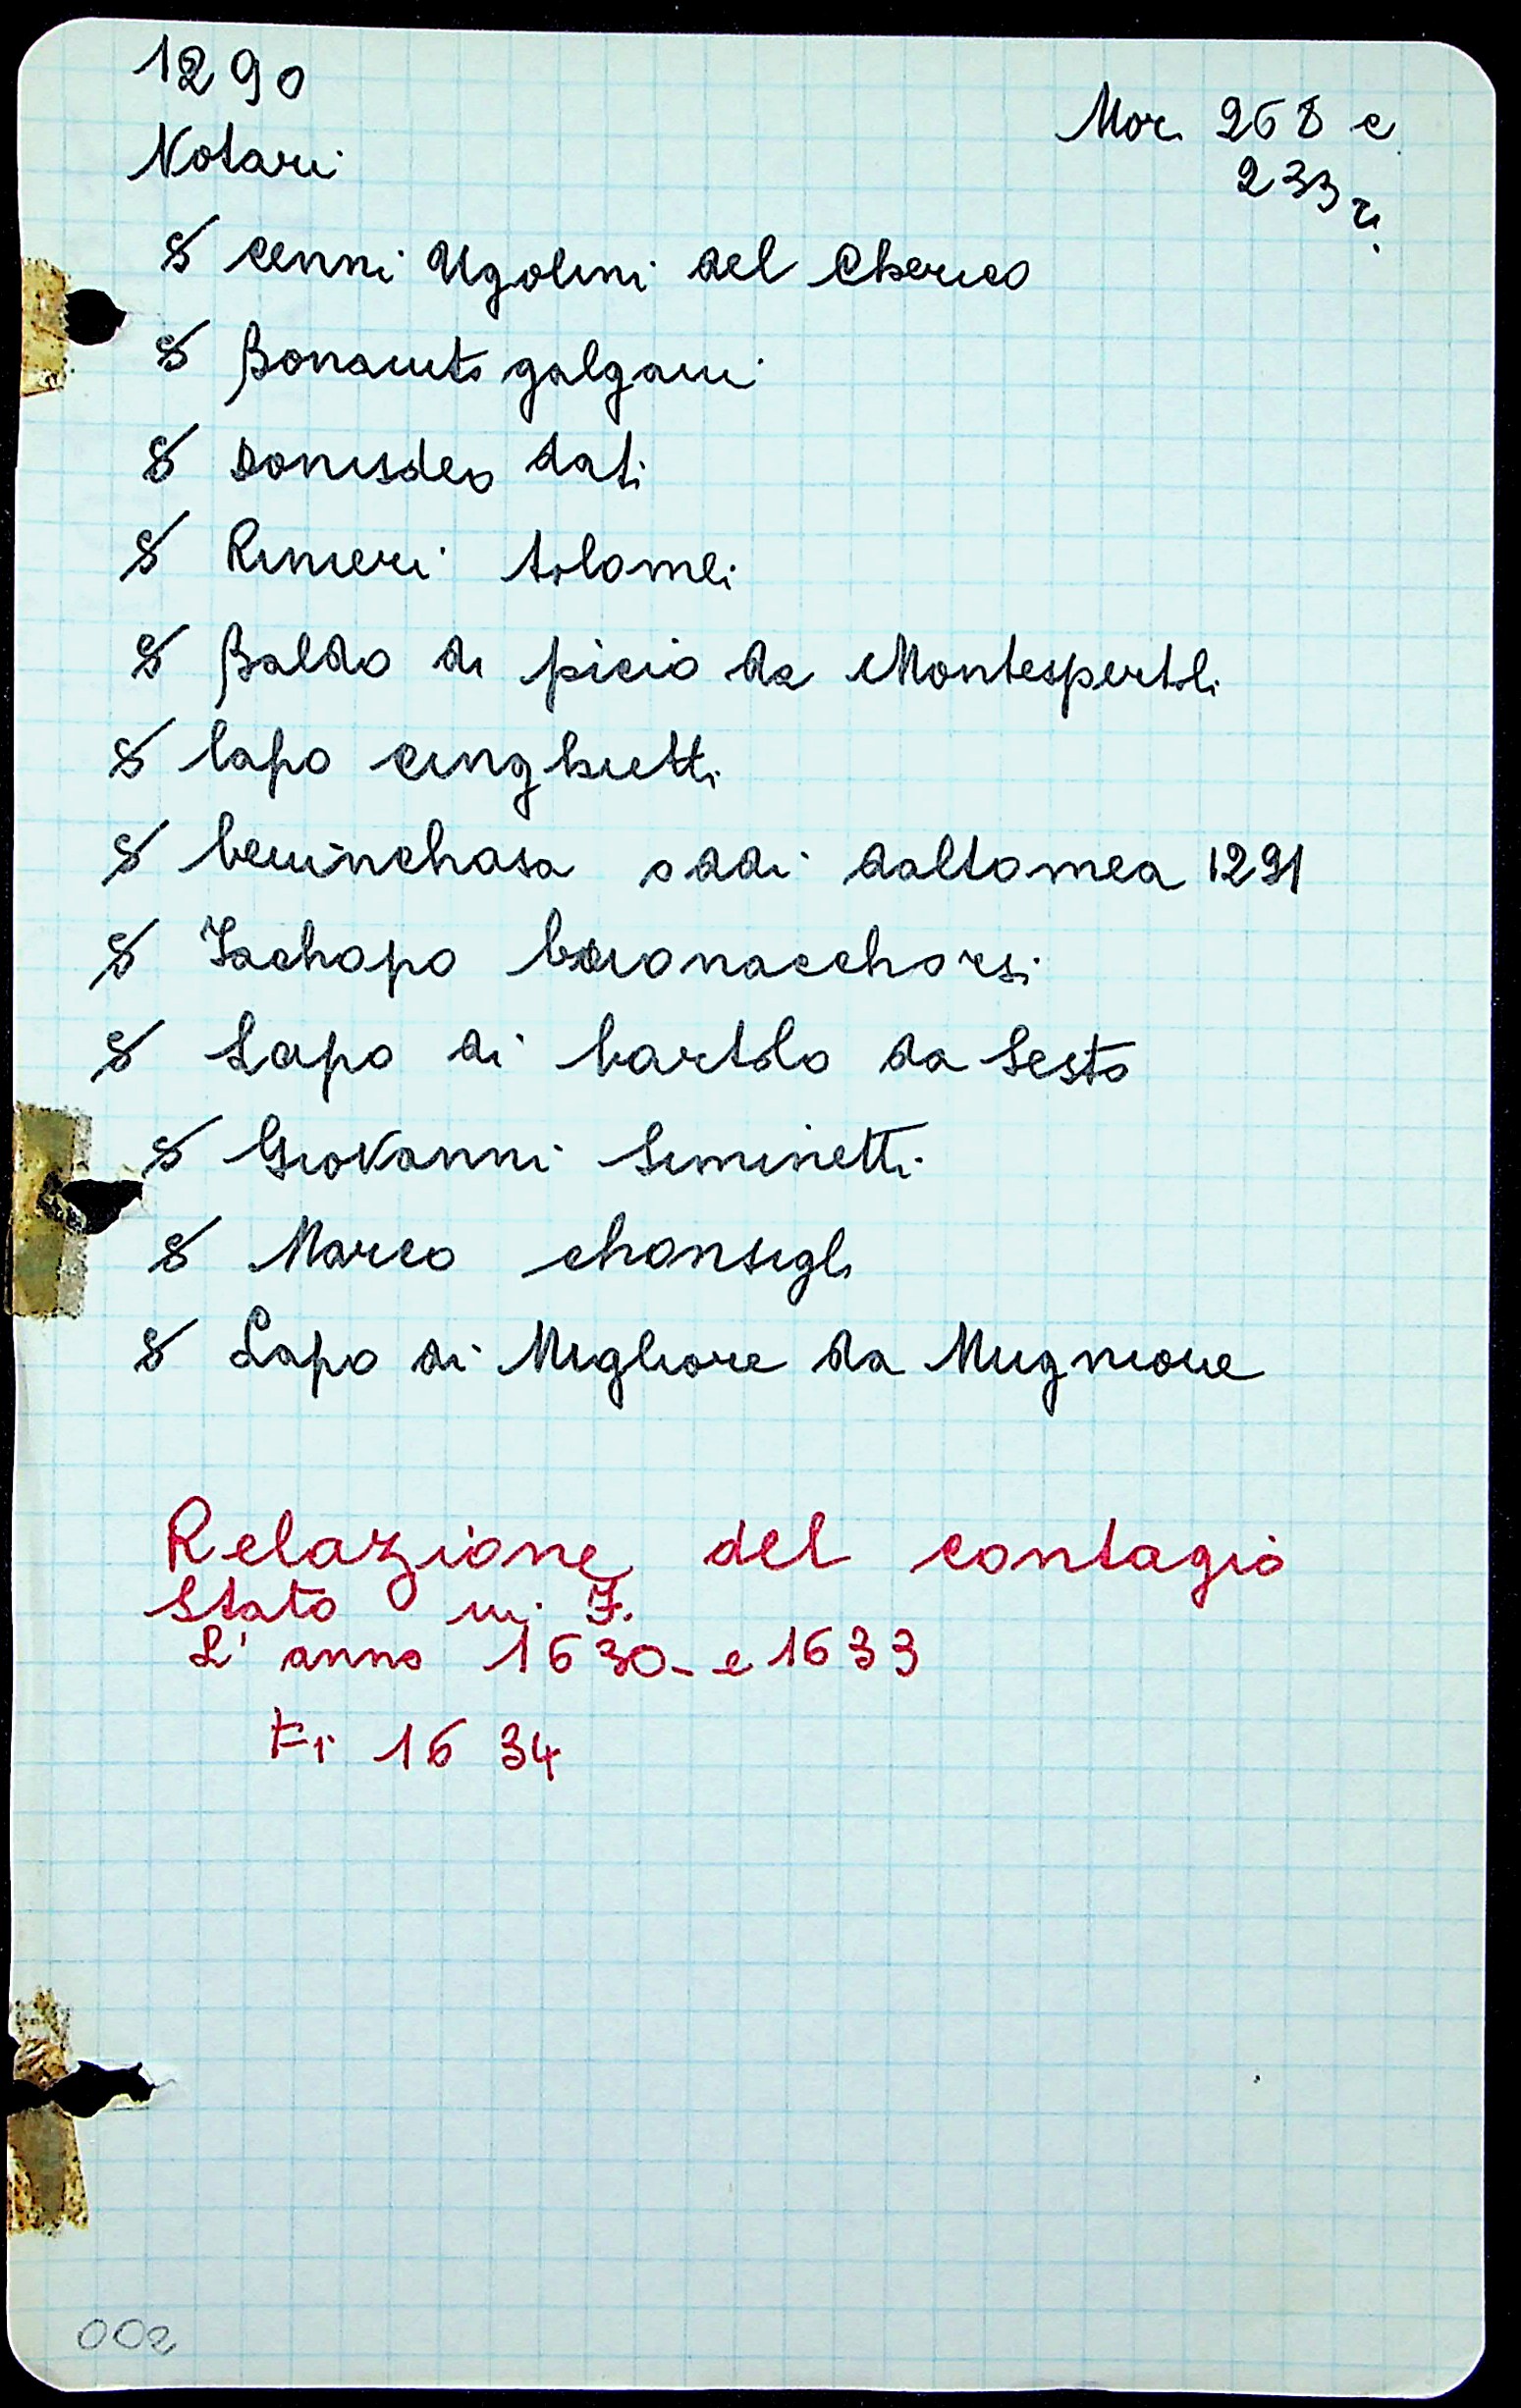 1290
Mor. 268 c.
233 r.
Notari
S Cenni Ugolini del Cherico
S Bonaiuto galgani
S Donisdeo dati
S Rinieri tolomei
S Baldo di picio da Montespertoli
S lapo cinghietti
S beninchasa oddi daltomea 1291
S Iachopo buonacchorsi
S Lapo di bartolo da Sesto
S Giovanni Siminetti
S Marco chonsigli
S Lapo di Migliore da Mugnione
Relazione del contagio
Stato in F.
L' anno 1630 - e 1633
Fi 1634
002